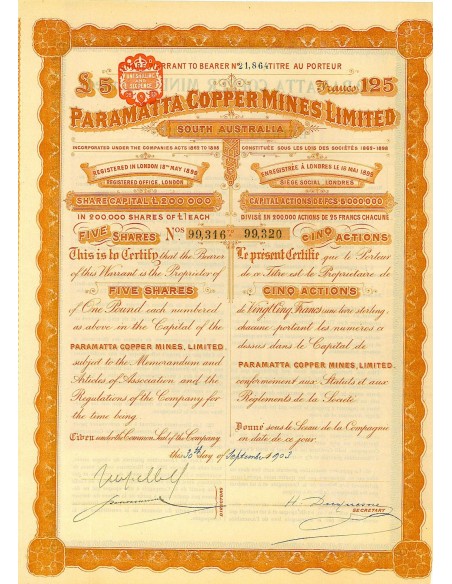 WARRANT TO BEARER Nº 21,864 TITRE AU PORTEUR
£5
Francs 125
PARAMATTA COPPER MINES LIMITED
SOUTH AUSTRALIA
INCORPORATED UNDER THE COMPANIES ACTS 1862 TO 1898
CONSTITUÉE SOUS LES LOIS DES SOCIÉTÉS 1862-1898
REGISTERED IN LONDON 18TH MAY 1898
REGISTERED OFFICE, LONDON
ENREGISTRÉE À LONDRES LE 18 MAI 1898
SIÈGE SOCIAL, LONDRES
SHARE CAPITAL £200,000
CAPITAL ACTIONS DE FCS 5,000,000
IN 200,000 SHARES OF £1 EACH
DIVISÉ EN 200,000 ACTIONS DE 25 FRANCS CHACUNE
FIVE SHARES Nos 99,316 99,320 CINQ ACTIONS
This is to Certify that the Bearer
of this Warrant is the Proprietor of
FIVE SHARES
of One Pound each numbered
as above in the Capital of the
PARAMATTA COPPER MINES, LIMITED
subject to the Memorandum and
Articles of Association and the
Regulations of the Company for
the time being.
Given under the Common Seal of the Company
Le présent Certifie que le Porteur
de ce Titre est le Propriétaire de
CINQ ACTIONS
de Vingt Cinq Francs (une livre sterling)
chacune portant les numéros ci
dessus dans le Capital de
PARAMATTA COPPER MINES, LIMITED
conformément aux Statuts et aux
Règlements de la Société.
Donné sous le Sceau de la Compagnie
en date de ce jour.
this 30th day of September 1903
DIRECTORS
SECRETARY